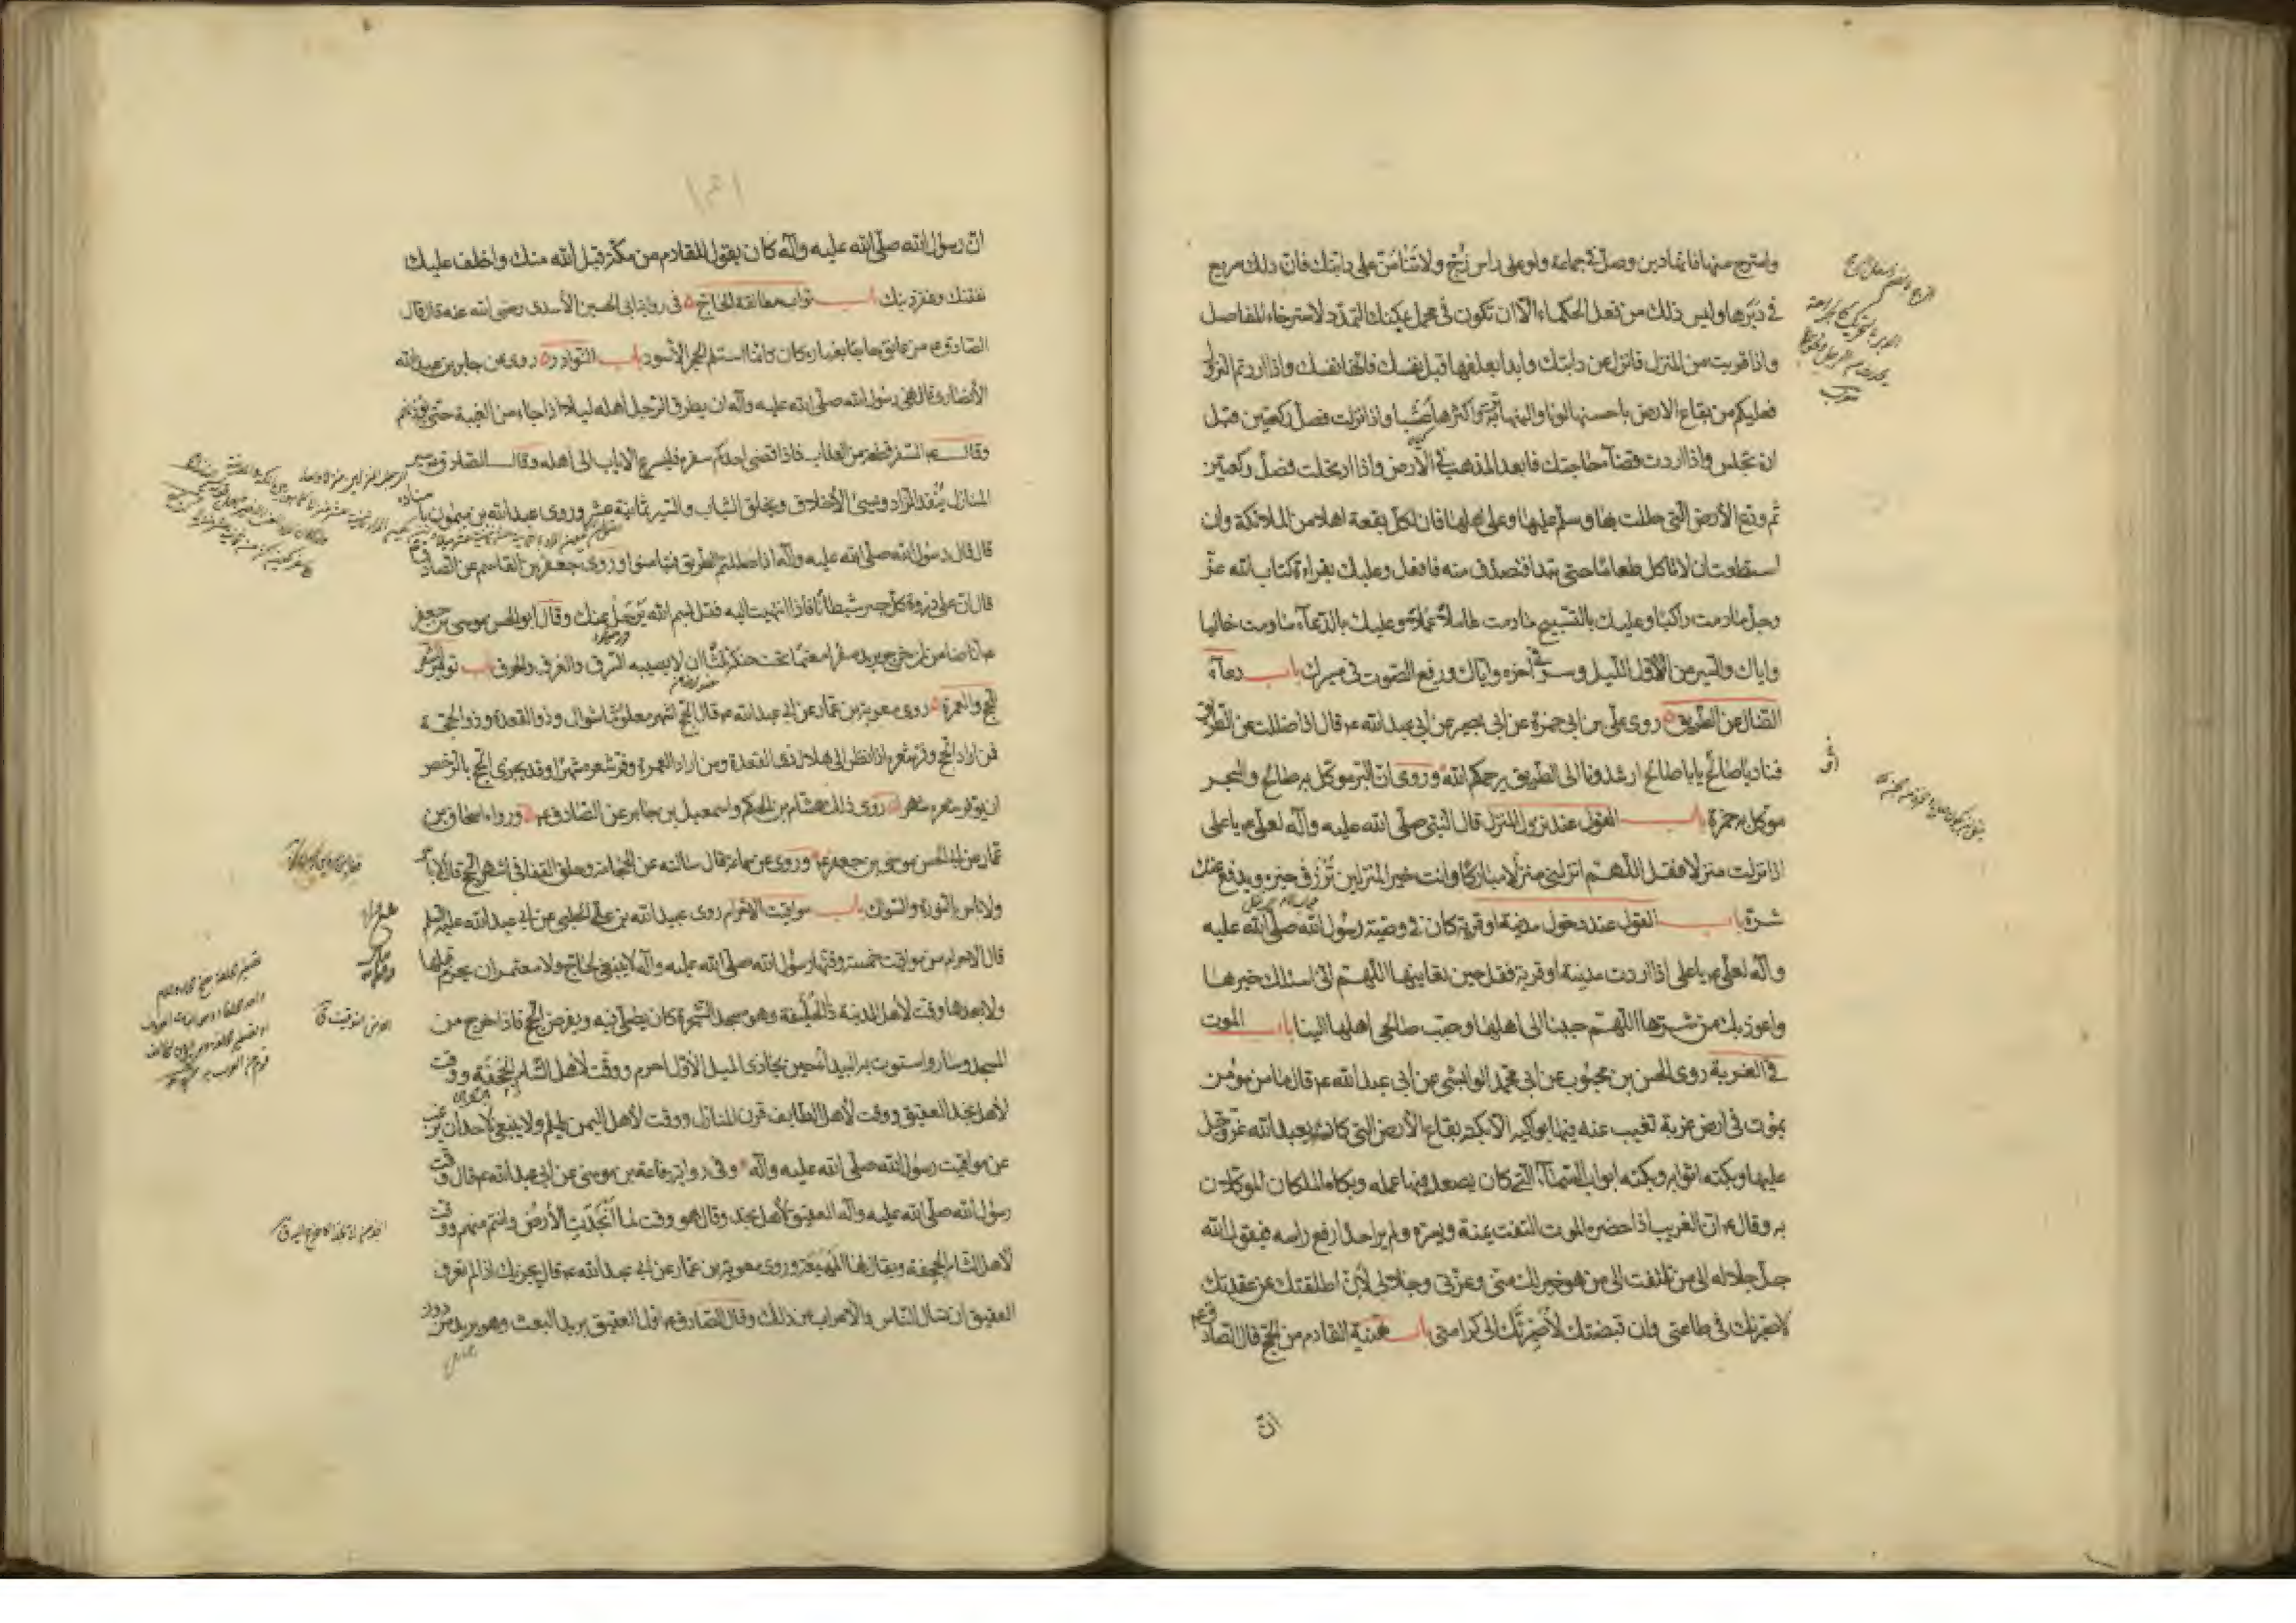 واسترح منها فانها دين وصل في جماعة ولو على راس زج ولا تنامن على دابتك فان ذلك سريع
في دبرها وليس ذلك من فعل الحكماء الا ان تكون في محمل يمكنك التمدد لاسترخاء المفاصل
واذا قربت من المنزل فانزل عن دابتك وابدا بعلفها قبل نفسك فانها نفسك واذا اردتم النزول
فعليكم من بقاع الارض باحسنها لونا والينها تربة واكثرها عشبا واذا نزلت فصل ركعتين قبل
ان تجلس واذا اردت قضاء حاجتك فابعد المذهب في الارض واذا ارتحلت فصل ركعتين
ثم ودع الأرض التي حللت بها وسلم عليها وعلى اهلها فان لكل بقعة اهلا من الملائكة وان
استطعت ان لا تاكل طعاما حتى تبدا فتصدق منه فافعل وعليك بقراءة كتاب الله عز
وجل ما دمت راكبا وعليك بالتسبيح ما دمت عاملا عملا وعليك بالدعاء ما دمت خاليا
واياك والسير من الاول الليل وسر في آخره واياك ورفع الصوت في مسيرك باب دعاء
الضال عن الطريق روى علي بن ابي حمزة عن ابي بصير عن ابي عبد الله ع قال اذا ضللت عن الطريق
فناد يا صالح يا ابا صالح ارشدونا الى الطريق يرحمكم الله وروى ان البر موكل به صالح والبحر
موكل به حمزة باب القول عند نزول المنزل قال النبي صلى الله عليه وآله لعلي ع يا علي
اذا نزلت منزلا فقل اللهم انزلني منزلا مباركا وانت خير المنزلين ترزق خيره ويدفع عنك
شره باب القول عند دخول مدينة او قرية كان في وصية رسول الله صلى الله عليه
وآله لعلي ع يا علي اذا اردت مدينة او قرية فقل حين تعاينها اللهم اني اسئلك خيرها
واعوذ بك من شرها اللهم حببنا الى اهلها وحبب صالحي اهلها الينا باب الموت
في الغربة روى الحسن بن محبوب عن ابي محمد الوابشي عن ابي عبد الله ع قال ما من مؤمن
يموت في ارض غربة تغيب عنه فيها بواكيه الا بكته بقاع الأرض التي كان يعبد الله عز وجل
عليها وبكته اثوابه وبكته ابواب السماء التي كان يصعد فيها عمله وبكاه الملكان الموكلان
به وقال ع ان الغريب اذا حضره الموت التفت يمنة ويسرة ولم ير احدا رفع راسه فيقول الله
جل جلاله الى من تلتفت الى من هو خير لك مني وعزتي وجلالي لئن اطلقتك عن عقدتك
لاصيرنك في طاعتي وان قبضتك لأصيرنك الى كرامتي باب تهنية القادم من الحج قال الصادق ع
ان
ان رسول الله صلى الله عليه وآله كان يقول للقادم من مكة قبل الله منك واخلف عليك
نفقتك وغفر ذنبك باب ثواب معانقة الحاج في رواية ابي الحسين الأسدي رضي الله عنه قال قال
الصادق ع من عانق حاجا بغباره كان كانما استلم الحجر الأسود باب النوادر روى عن جابر بن عبد الله
الأنصاري قال نهى رسول الله صلى الله عليه وآله ان يطرق الرجل اهله ليلا اذا جاء من الغيبة حتى يؤذنهم
وقال ع السفر قطعة من العذاب فاذا قضى احدكم سفره فليسرع الاياب الى اهله وقال الصادق ع سير
المنازل ينفد الزاد ويسئ الأخلاق ويخلق الثياب والسير ثمانية عشر وروى عبد الله بن ميمون باسناده
قال قال رسول الله صلى الله عليه وآله اذا ضللتم الطريق فتيامنوا وروى جعفر بن القاسم عن الصادق ع
قال ان على ذروة كل جسر شيطانا فاذا انتهيت اليه فقل بسم الله يرحل عنك وقال ابو الحسن موسى بن جعفر
ع انا ضامن لمن خرج يريد سفرا معتما تحت حنكه ثلثا ان لا يصيبه السرق والغرق والحرق باب توفير الشعر
للحج والعمرة روى معوية بن عمار عن ابي عبد الله ع قال الحج اشهر معلومات شوال وذو القعدة وذو الحجة
فمن اراد الحج وفر شعره اذا نظر الى هلال ذي القعدة ومن اراد العمرة وفر شعره شهرا وقد يجزي الحج بالرخص
ان يوفر شعره شهرا روى ذلك هشام بن الحكم واسمعيل بن جابر عن الصادق ع ورواه اسحاق بن
عمار عن ابي الحسن موسى بن جعفر ع وروى عن سماعة قال سالته عن الحجامة وحلق القفا في اشهر الحج قال لا باس
ولا باس بالنورة والسواك باب مواقيت الاحرام روى عبيد الله بن علي الحلبي عن ابي عبد الله عليه السلم
قال الاحرام من مواقيت خمسة وقتها رسول الله صلى الله عليه وآله لا ينبغي لحاج ولا معتمر ان يحرم قبلها
ولا بعدها وقت لأهل المدينة ذا الحليفة وهو مسجد الشجرة كان يصلي فيه ويفرض الحج فاذا خرج من
المسجد وسار واستوت به البيداء حين يحاذي الميل الأول احرم ووقت لأهل الشام الجحفة ووقت
لأهل نجد العقيق ووقت لأهل الطايف قرن المنازل ووقت لأهل اليمن يلملم ولا ينبغي لأحد ان يرغب
عن مواقيت رسول الله صلى الله عليه وآله وفي رواية رفاعة بن موسى عن ابي عبد الله ع قال وقت
رسول الله صلى الله عليه وآله العقيق لأهل نجد وقال هو وقت لما انجدت الأرض وانتم منهم ووقت
لأهل الشام الجحفة ويقال لها المهيعة وروى معوية بن عمار عن ابي عبد الله ع قال يجزيك اذا لم تعرف
العقيق ان تسال الناس والاعراب عن ذلك وقال الصادق ع اول العقيق بريد البعث وهو بريد من دون